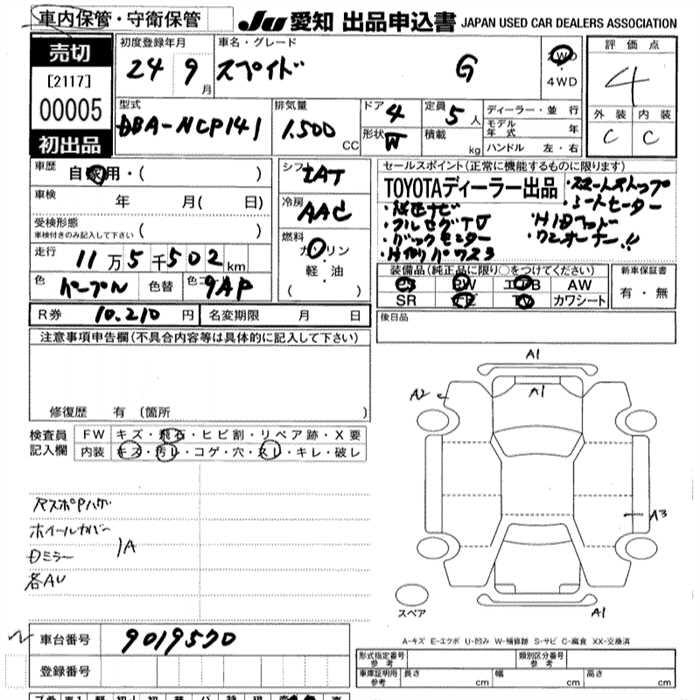 車内保管・守衛保管
JU 愛知 出品申込書 JAPAN USED CAR DEALERS ASSOCIATION
売切
[2117]
00005
初出品
初度登録年月
24 9 月
車名・グレード
スペイド G
4WD
評価点
4
外装 内装
C C
型式
DBA-NCP141
排気量
1.500 CC
ドア 4
形状 W
定員 5 人
積載 kg
ディーラー・並行
モデル年式 年
ハンドル 左・右
車歴
自家用・( )
車検 年 月( 日)
受検形態
車検付きのみ記入して下さい ( )
走行
11万5千502km
色 パープル 色替 色コ 9AP
シフト
冷房
AAC
燃料
ガソリン
軽・油
( )
セールスポイント(正常に機能するものに限ります)
TOYOTAディーラー出品
・スマートストップ
・シートヒーター
・純正ナビ
・フルセグTV
・バックモニター
・ワンオーナー!!
装備品(純正品に限り○をつけてください)
PS PW エアB AW
SR TV カワシート
新車保証書
有・無
R券 10.210 円 名変期限 月 日
後日品
注意事項申告欄(不具合内容等は具体的に記入して下さい)
修復歴 有(箇所 )
検査員
記入欄
FW キズ・飛石・ヒビ割・リペア跡・X要
内装 キズ・汚レ・コゲ・穴・スレ・キレ・破レ
ホイールカバー
Dミラー 1A
各AU
A1
A2
A1
A3
A1
スペア
A-キズ E-エクボ U-凹み W-補修跡 S-サビ C-腐食 XX-交換済
車台番号 9019570
登録番号
形式指定番号
参考
類別区分番号
参考
車庫証明用
参考
長さ cm 幅 cm 高さ cm